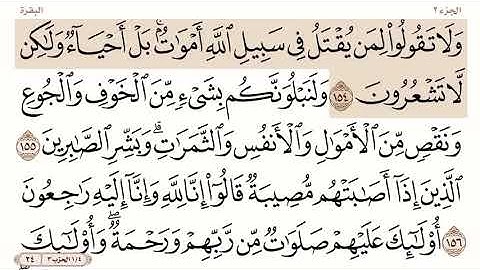 الجزء ٢ البقرة
وَلَا تَقُولُوا۟ لِمَن يُقْتَلُ فِى سَبِيلِ ٱللَّهِ أَمْوَٰتٌۢ ۚ بَلْ أَحْيَآءٌ وَلَـٰكِن
لَّا تَشْعُرُونَ ١٥٤ وَلَنَبْلُوَنَّكُم بِشَىْءٍ مِّنَ ٱلْخَوْفِ وَٱلْجُوعِ
وَنَقْصٍ مِّنَ ٱلْأَمْوَٰلِ وَٱلْأَنفُسِ وَٱلثَّمَرَٰتِ ۗ وَبَشِّرِ ٱلصَّـٰبِرِينَ ١٥٥
ٱلَّذِينَ إِذَآ أَصَـٰبَتْهُم مُّصِيبَةٌ قَالُوٓا۟ إِنَّا لِلَّهِ وَإِنَّآ إِلَيْهِ رَٰجِعُونَ
١٥٦ أُو۟لَـٰٓئِكَ عَلَيْهِمْ صَلَوَٰتٌ مِّن رَّبِّهِمْ وَرَحْمَةٌ ۖ وَأُو۟لَـٰٓئِكَ
١/٤ الحزب ٣ ٢٤